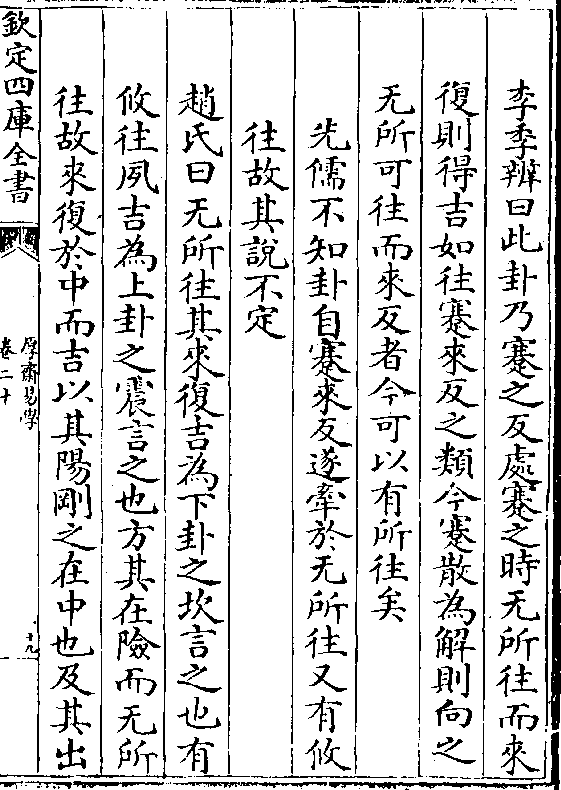 李季辨曰此卦乃蹇之反處蹇之時无所往而來
復則得吉如往蹇來反之類今蹇散為解則向之
无所可往而來反者今可以有所往矣
先儒不知卦自蹇來反遂牽於无所往又有攸
往故其說不定
趙氏曰无所往其來復吉為下卦之坎言之也有
攸往夙吉為上卦之震言之也方其在險而无所
往故來復於中而吉以其陽剛之在中也及其出
欽定四庫全書
厚齋易學
卷二十
十九